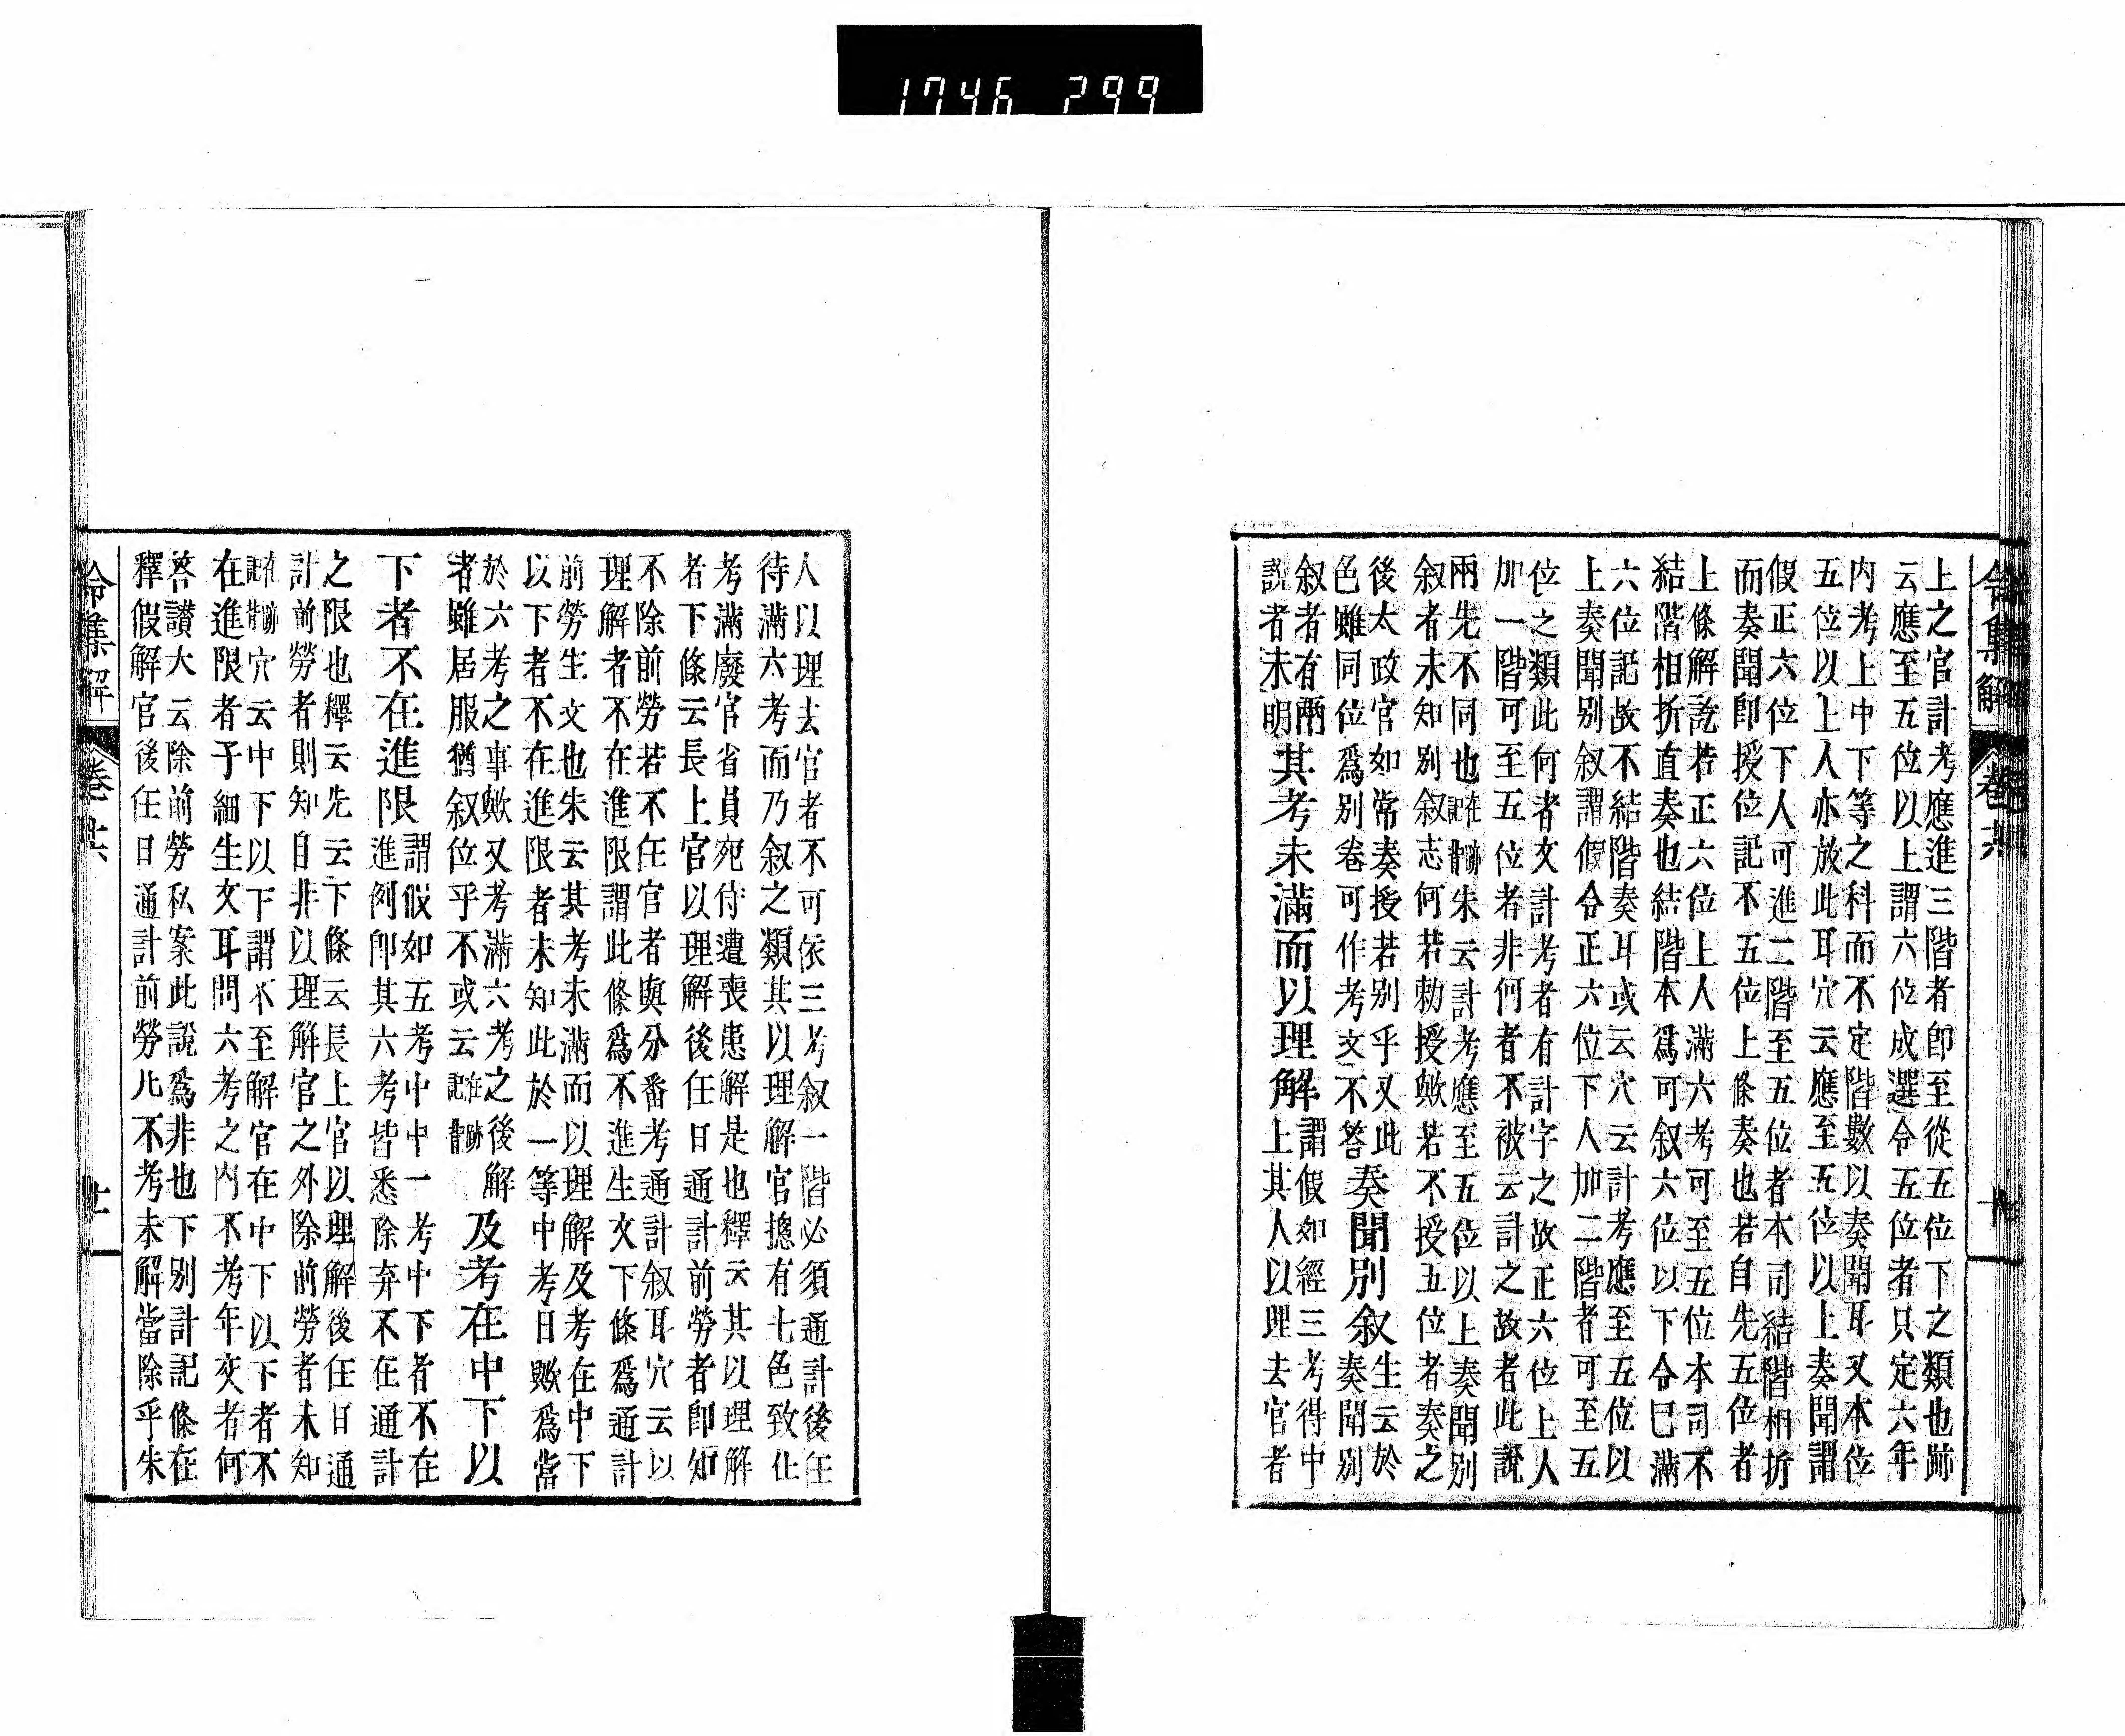 1746 299
令集解 卷
上之官計考應進三階者卽至從五位下之類也跡
云應至五位以上謂六位成選令五位者只定六年
内考上中下等之科而不定階數以奏聞耳又本位
五位以上人亦放此耳穴云應至五位以上奏聞謂
假正六位下人可進二階至五位者本司結階相折
而奏聞卽授位記不五位上條奏也若自先五位者
上條解訖若正六位上人滿六考可至五位本司不
結階相折直奏也結階本爲可叙六位以下令已滿
六位記故不結階奏耳或云穴云計考應至五位以
上奏聞别叙謂假令正六位下人加二階者可至五
位之類此何者文計考者有計字之故正六位上人
加一階可至五位者非何者不被云計之故者此說
兩先不同也記在背跡朱云計考應至五位以上奏聞别
叙者未知别叙志何若勅授歟若不授五位者奏之
後太政官如常奏授若别乎又此
色雖同位爲别卷可作考文不答
奏聞别叙
生云於
奏聞别
叙者有兩
說者未明
其考未滿而以理解
謂假如經三考得中
上其人以理去官者
人以理去官者不可依三考叙一階必須通計後任
待滿六考而乃叙之類其以理解官摠有七色致仕
考滿廢官省員宛侍遭喪患解是也釋云其以理解
者下條云長上官以理解後任日通計前勞者卽知
不除前勞若不任官者與分番考通計叙耳穴云以
理解者不在進限謂此條爲不進生文下條爲通計
前勞生文也朱云其考未滿而以理解及考在中下
以下者不在進限者未知此於一等中考日歟爲當
於六考之事歟又考滿六考之後解
者雖居服猶叙位乎不或云記在背跡
及考在中下以
下者不在進限
謂假如五考中中一考中下者不在
進例卽其六考皆悉除弃不在通計
之限也釋云先云下條云長上官以理解後任日通
計前勞者則知自非以理解官之外除前勞者未知
記在背跡穴云中下以下謂不至解官在中下以下者不
在進限者予細生文耳問六考之内不考年交者何
答讃大云除前勞私案此說爲非也下别計記條在
釋假解官後任日通計前勞凡不考未解當除乎朱
令集解 卷